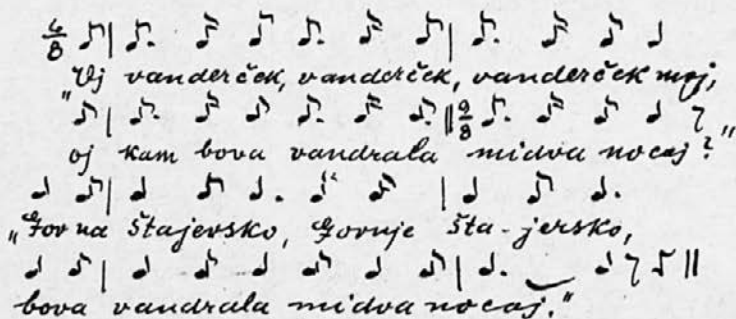 6/8
"Oj vanderček, vanderček, vanderček moj,
9/8
oj kam bova vandrala midva nocoj?"
„Gor na Štajersko, Gornje Šta-jersko,
bova vandrala midva nocoj."